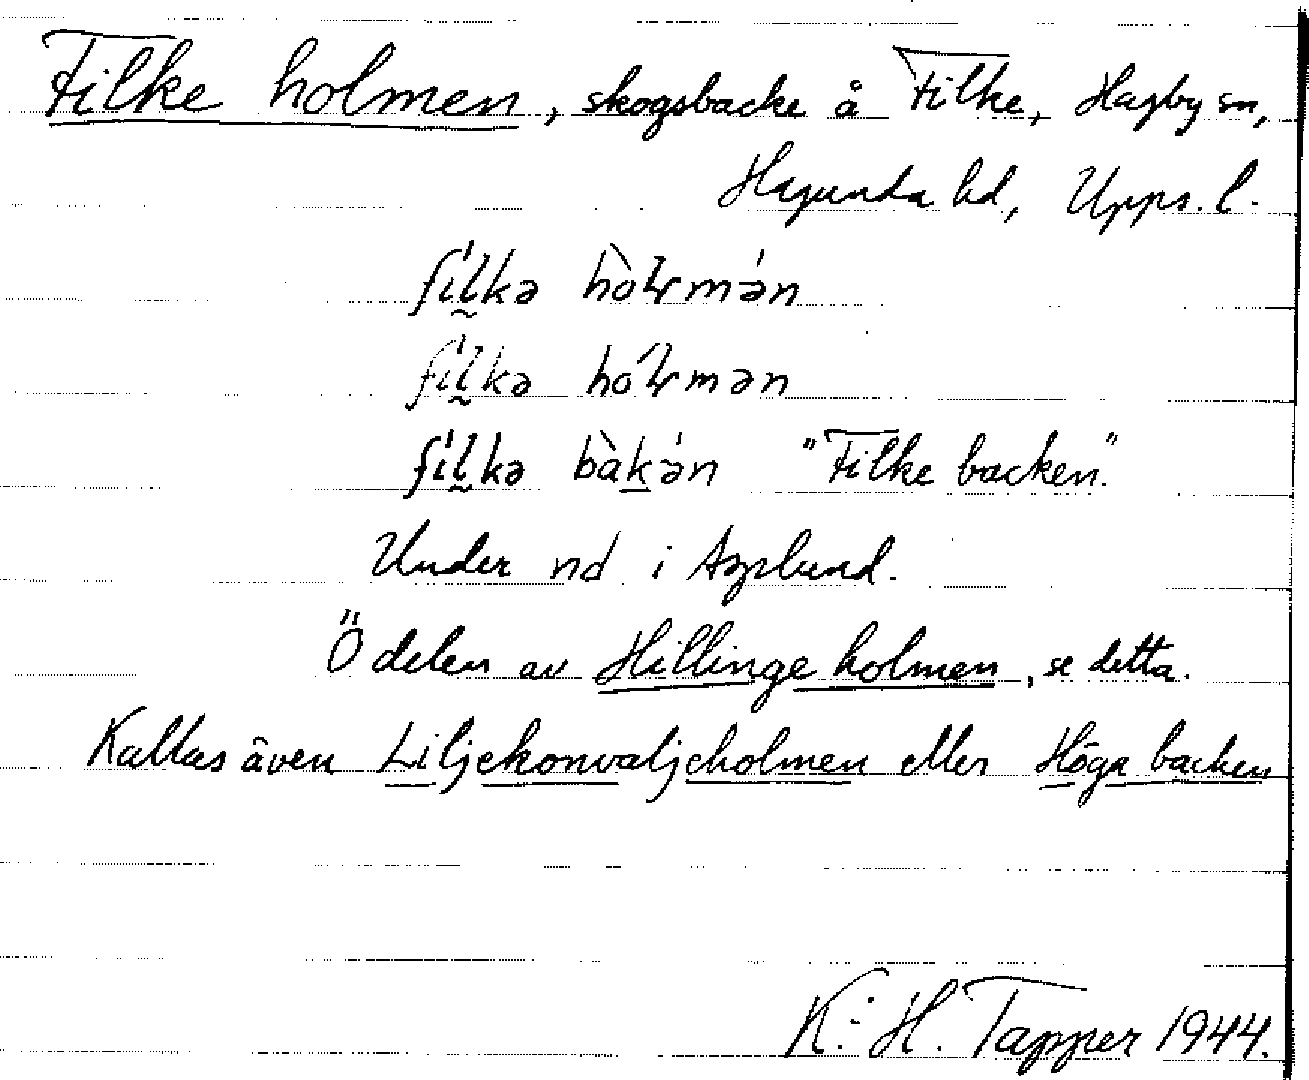 Filke holmen, skogsbacke å Filke, Hagby sn,
Hagunda hd, Upps. l.
"Filke backen"
Under nd i Asplund.
Ö delen av Hillinge holmen, se detta.
Kallas även Liljekonvaljeholmen eller Höga backen
K. H. Tapper 1944.